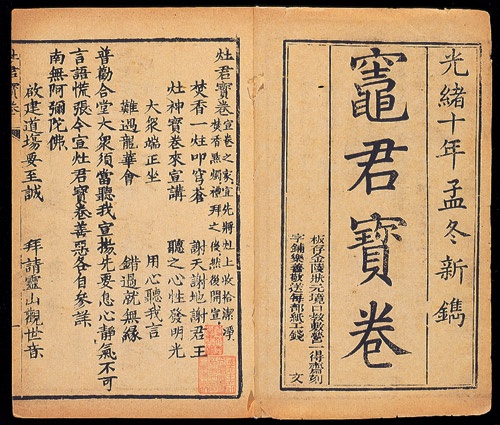 光緒十年孟冬新鐫
竈君寶卷
板存金陵狀元境口教敷營一得齋刻
字鋪樂善敬送每部紙工錢 文
灶君寶卷 宣卷之家宜先將灶上收拾潔淨
焚香點燭禮拜之後然後開宣
焚香一炷叩穹蒼 謝天謝地謝君王
灶神寶卷來宣講 聽之心性發明光
大衆端正坐 用心聽我言
難過龍華會 錯過就無緣
普勸合堂大衆須當聽我宣揚先要息心靜氣不可
言語慌張今宣灶君寶卷善惡各自參詳
南無阿彌陀佛
啟建道場要至誠 拜請靈山觀世音
灶君寶卷